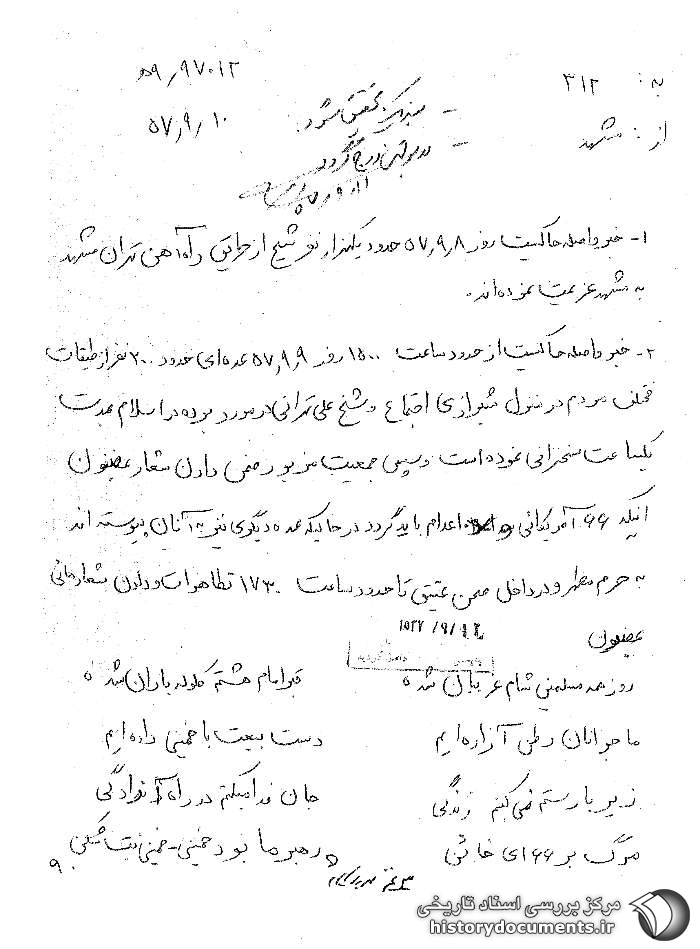 به : ۳۱۲
۵۹٫۹۷۰۱۲
از : مشهد
۵۷٫۹٫۱۰
- تحقیق شود.
- در بولتن درج گردد
۱- خبر واصله حاکیست روز ۵۷٫۹٫۸ حدود یکهزار نفر شیخ از طریق راه آهن تهران مشهد
به مشهد عزیمت نموده اند.
۲- خبر واصله حاکیست از حدود ساعت ۱۵۰۰ روز ۵۷٫۹٫۹ عده ای حدود ۲۰۰ نفر از طبقات
مختلف مردم در منزل شیرازی اجتماع و شیخ علی تهرانی در مورد برده در اسلام بمدت
یکساعت سخنرانی نموده است و سپس جمعیت مزبور ضمن دادن شعار بمضمون
اینکه ۶۶ آمریکائی اعدام باید گردد در حالیکه عده دیگری نیز به آنان پیوسته اند
به حرم مطهر و در داخل صحن عتیق تا حدود ساعت ۱۷۳۰ تظاهرات و دادن شعارهائی
بمضمون
روز همه مسلمین شام غریبان شده قبر امام هشتم گلوله باران شده
ما جوانان وطن آزاده ایم دست بیعت با خمینی داده ایم
زیر بار ستم نمی کنیم زندگی جان فدا میکنم در راه آزادگی
مرگ بر ۶۶ای خائن رهبر ما بود خمینی - خمینی بت شکنی
۹
مرکز بررسی اسناد تاریخی
historydocuments.ir